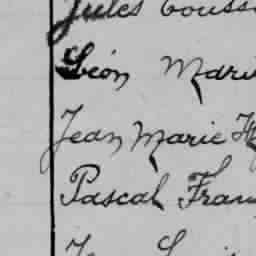 Jules
Léon Mari
Jean Marie
Pascal Fran